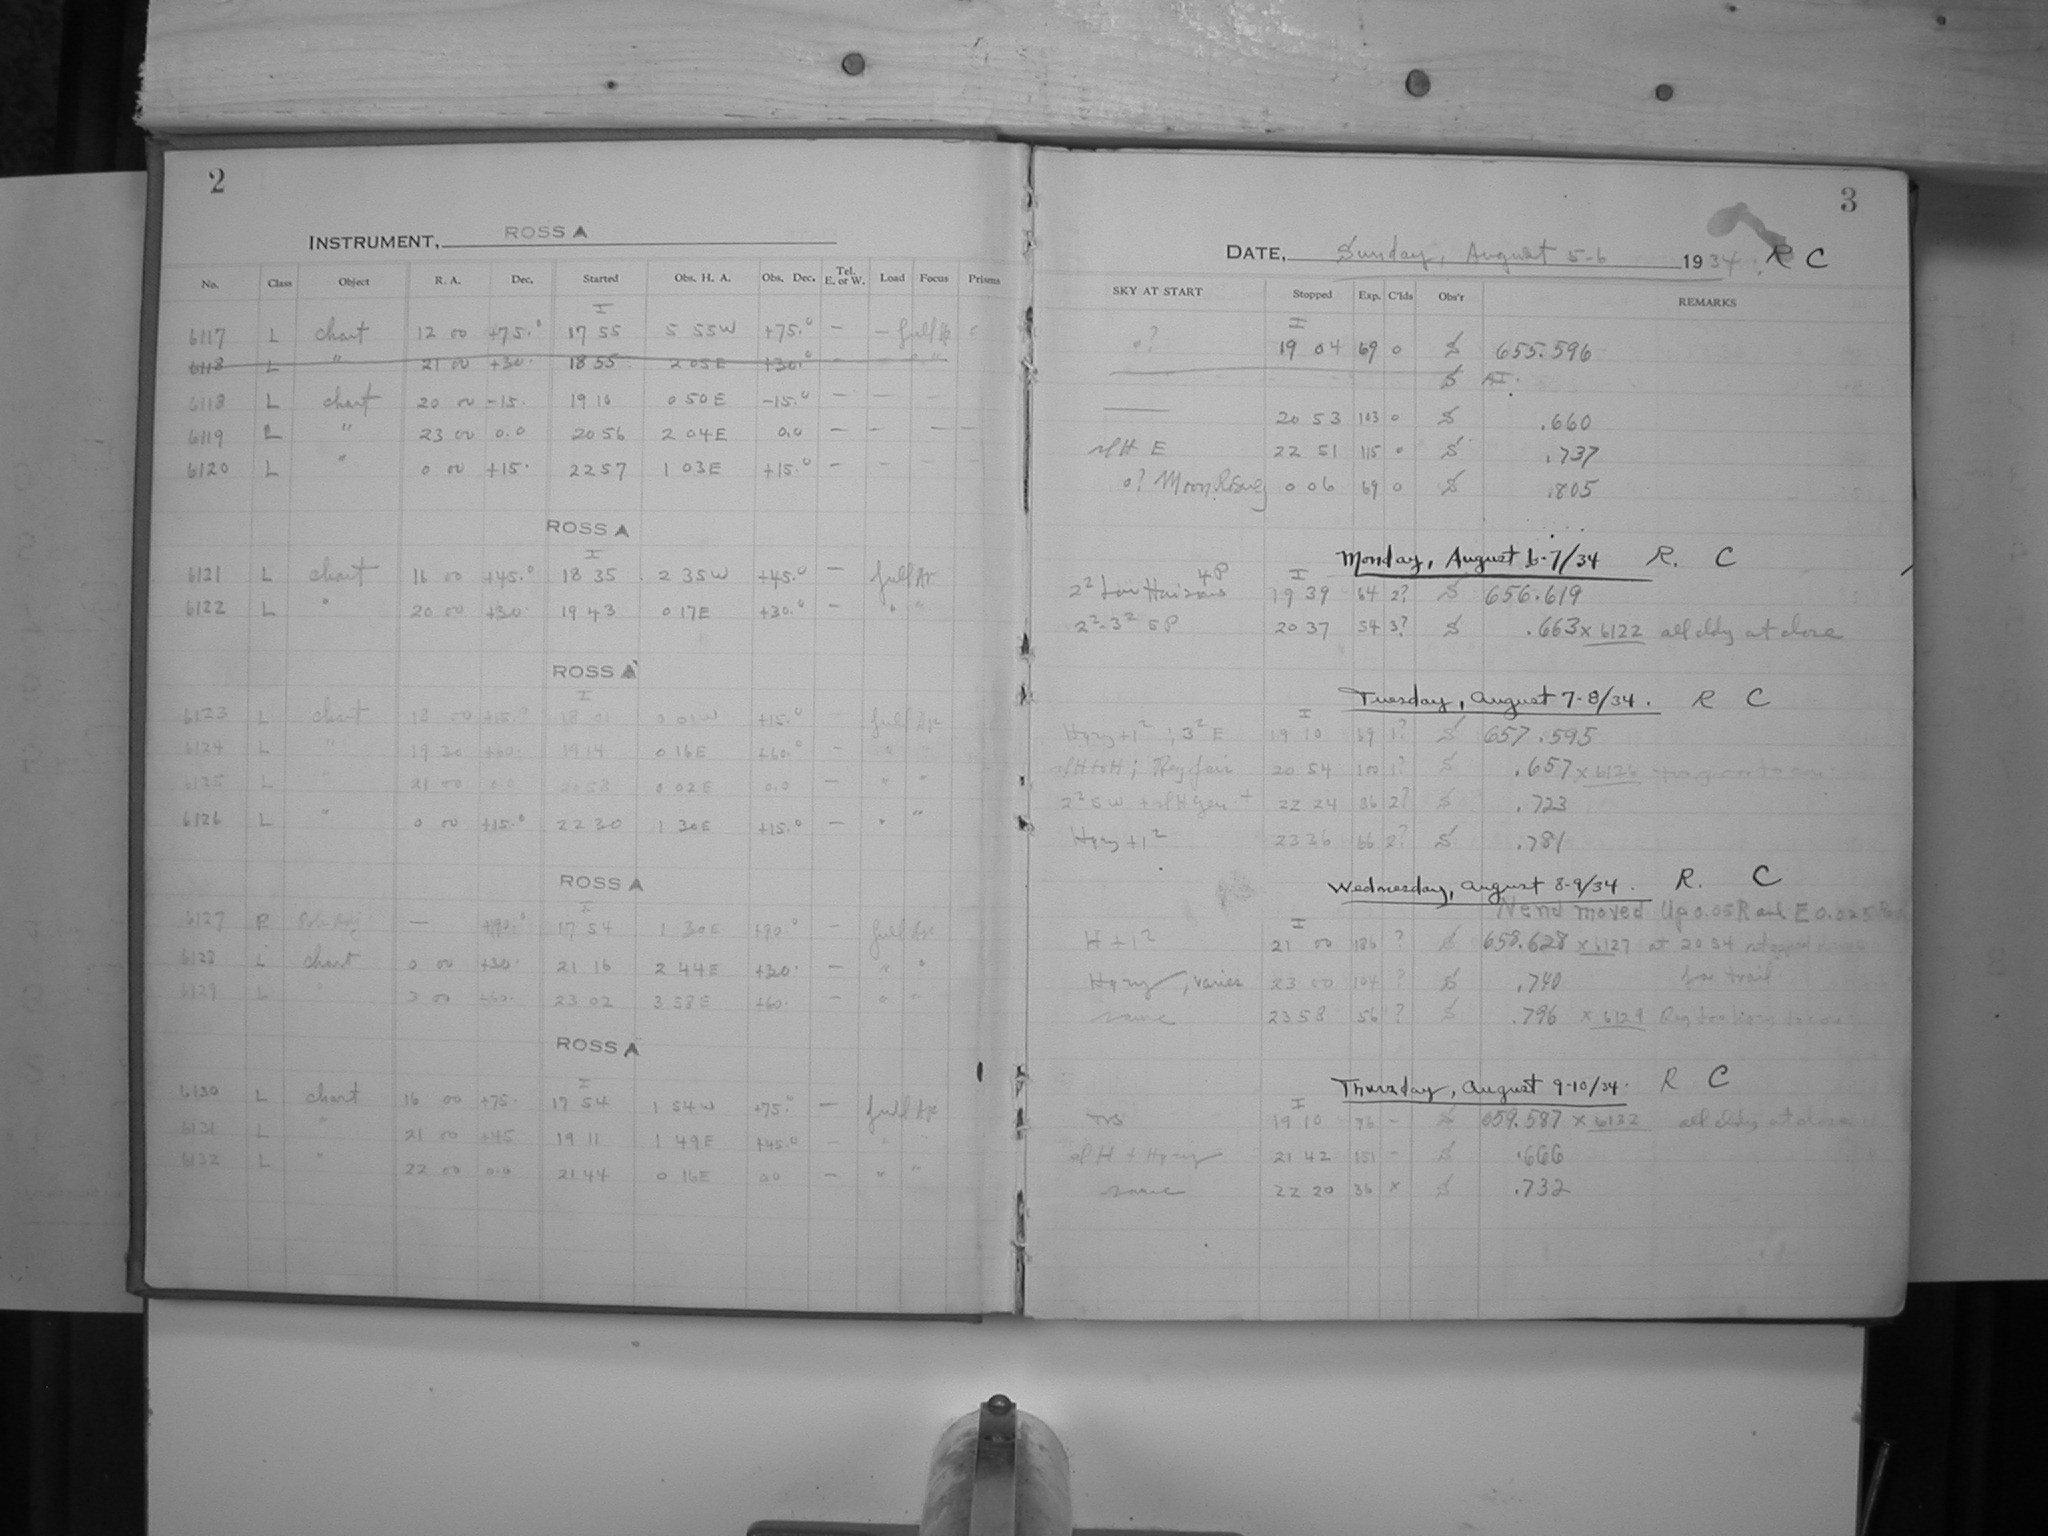 2
INSTRUMENT, ROSS A
No. Class Object R. A. Dec. Started Obs. H. A. Obs. Dec. Tel. E. or W. Load Focus Prisms
I
6117 L chart 12 00 +75.° 17 55 5 55W +75.° — — full
6118 L " 21 00 +30. 18 55 2 05E +30.° — " "
6118 L chart 20 00 -15. 19 10 0 50E -15.° — — —
6119 L " 23 00 0.0 20 56 2 04E 0.0 — — — —
6120 L " 0 00 +15. 22 57 1 03E +15.° — — — —
ROSS A
I
6121 L chart 16 00 +45.° 18 35 2 35W +45.° — full
6122 L " 20 00 +30. 19 43 0 17E +30.° — " "
ROSS A
I
6123 L chart 18 00 +15.° 18 01 0 01W +15.° — full
6124 L " 19 30 +60. 19 14 0 16E +60.° — "
6125 L " 21 00 0.0 20 58 0 02E 0.0 — " "
6126 L " 0 00 +15.° 22 30 1 30E +15.° — " "
ROSS A
I
6127 — +90.° 17 54 1 30E +90.° — full
6128 L chart 0 00 +30. 21 16 2 44E +30. — " "
6129 L " 3 00 +60. 23 02 3 58E +60. — " "
ROSS A
I
6130 L chart 16 00 +75. 17 54 1 54W +75.° — full
6131 L " 21 00 +45 19 11 1 49E +45.° — " "
6132 L " 22 00 0.0 21 44 0 16E 0.0 — " "
3
DATE, Sunday, August 5-6 1934. R C
SKY AT START Stopped Exp. C'lds Obs'r REMARKS
I
0? 19 04 69 0 S 655.596
S
— 20 53 103 0 S .660
E 22 51 115 0 S .737
0? Moon Rising 0 06 69 0 S .805
Monday, August 6-7/34 R. C
I
2² Low Horizons 4P 19 39 64 2? S 656.619
2²-3² 5P 20 37 54 3? S .663 x 6122 all cldy at close
Tuesday, August 7-8/34. R C
I
Hazy +1² ; 3² E 19 10 69 1? S 657.595
20 54 100 1? S .657 x 6126
2² SW 22 24 86 2? S .723
Hazy +1² 23 36 66 2? S .781
Wednesday, August 8-9/34. R. C
N end moved Up 0.05 R and E 0.025
I
H +1² 21 00 186 ? S 658.628 x 6127 at 20 54 stopped
Hazy, varies 23 00 104 ? S .740 for trail
same 23 58 56 ? S .796 x 6129
Thursday, August 9-10/34. R C
I
19 10 76 - S 659.587 x 6132 all cldy at close
21 42 151 - S .666
same 22 20 36 x S .732